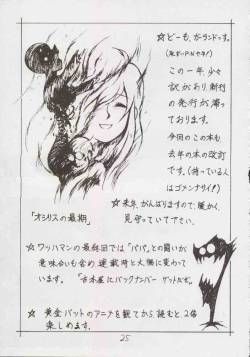 ☆どーも、ガーランドっす。
この一年、少々
訳があり、新刊
の発行が滞っ
ております。
今回のこの本も
去年の本の改訂
です。(持っている人
はゴメンナサイ!)
☆来年、がんばりますので、暖かく、
見守っていて下さい。
「オシリスの最期」
☆ワッハマンの最終回では「パパ」との闘いが
意味合いも含め、連載時と大幅に変わって
います。「古本屋にバックナンバーゲットだぜ」
☆黄金バットのアニメを観てから読むと2倍
楽しめます。
25